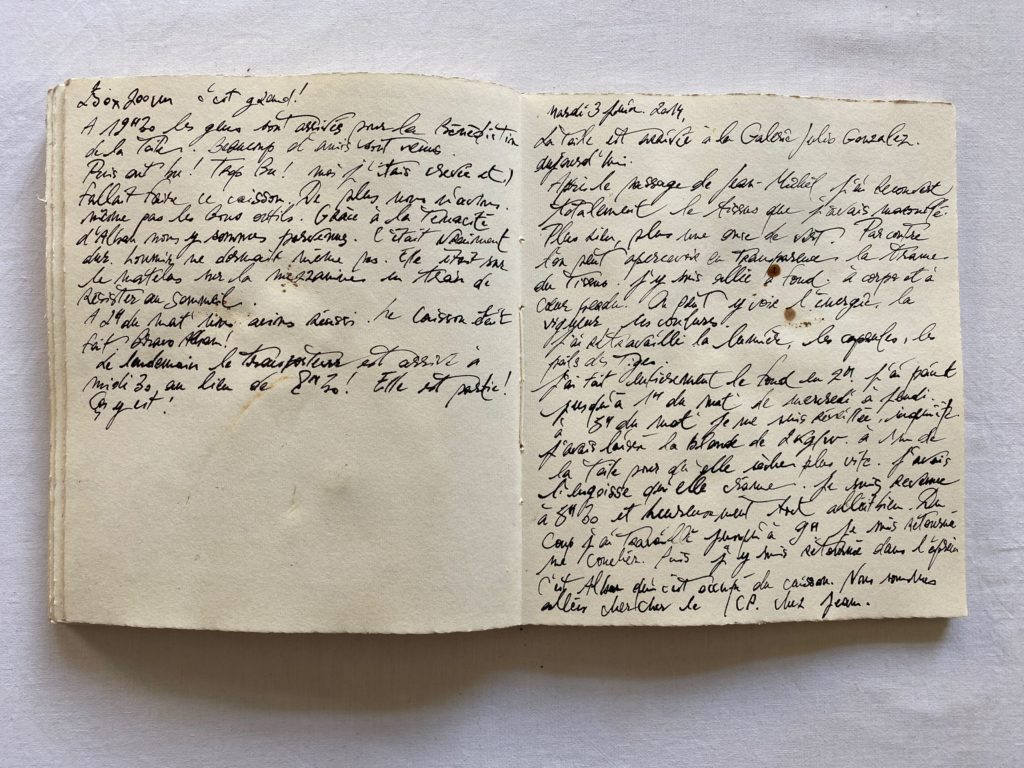 c'est grand!
A 19H30 les gens sont arrivés pour la Bénédiction
de la Toile. Beaucoup d'amis sont venus.
Puis ont bu! Trop Bu! moi j'étais et
fallait faire ce caisson. De plus nous n'avions
même pas les bons outils. Grâce à la Tenacité
d'Alban nous y sommes parvenus. C'était vraiment
dur. Loumir ne dormait même pas. Elle était sur
le matelas sur la mezzanine en train de
résister au sommeil.
A 2H du mat' nous avions réussi. Le caisson était
fait Bravo Alban!
Le lendemain le transporteur est arrivé à
midi 30, au lieu de 8H30! Elle est partie!
ça y est!
mardi 3 juin 2014,
La toile est arrivée à la Galerie Julio Gonzalez.
aujourd'hui.
Après le passage de Jean-Michel j'ai recouvert
totalement le tissu que j'avais marouflé.
Plus rien, plus une once de vert. Par contre
l'on peut apercevoir en transparence la trame
du Tissu. J'y suis allée à fond à corps et à
cœur perdu. On peut y voir l'énergie, la
vigueur
J'ai retravaillé la lumière, les les
des
J'ai fait entièrement le fond en 2H. J'ai peint
jusqu'à 1H du mat' de mercredi à jeudi...
à 8H du mat' je me suis réveillée, inquiète
j'avais laissé la de 2kg/w. à de
la toile pour qu'elle sèche plus vite. J'avais
l'angoisse qu'elle crame. Je suis revenue
à 8H30 et heureusement tout allait bien. Du
coup j'ai travaillé jusqu'à 9H je suis retournée
me coucher. Puis j'y suis retournée dans l'après
C'est Alban qui s'est occupé du caisson. Nous sommes
allés chercher le CP. chez Jean.